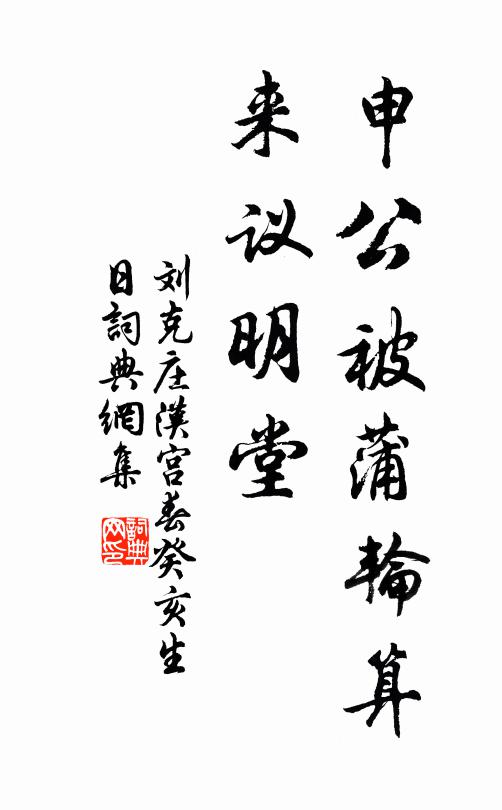 申公被蒲輪算
来议明堂
刘克庄漢宫春癸亥生
日詞典網集
詞典網印